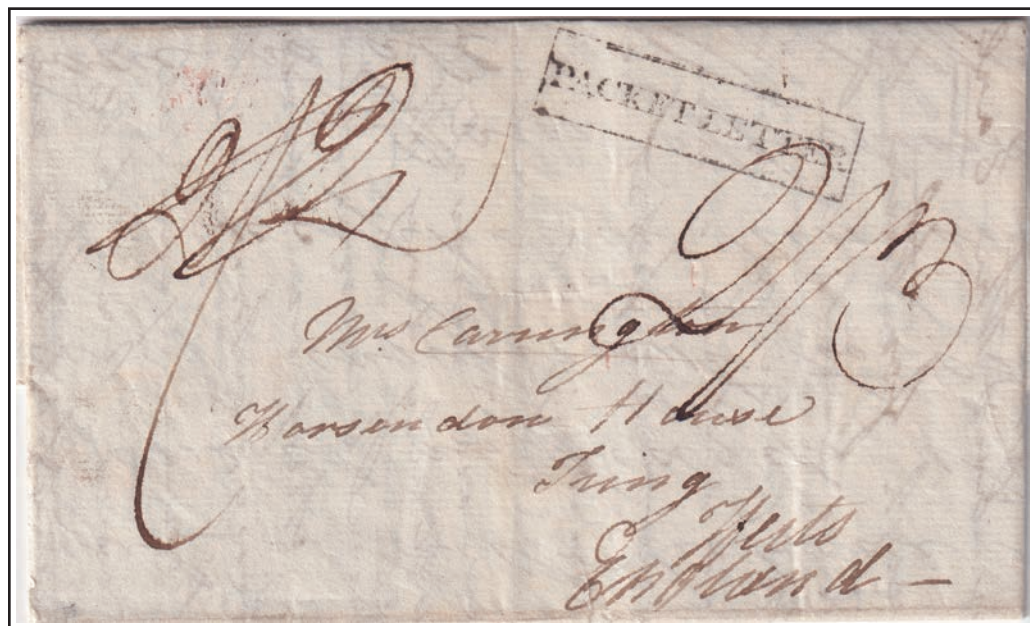 PACKET LETTER
2/2
2/3
Mrs Carrington
Horsendon House
Tring
Herts
England —